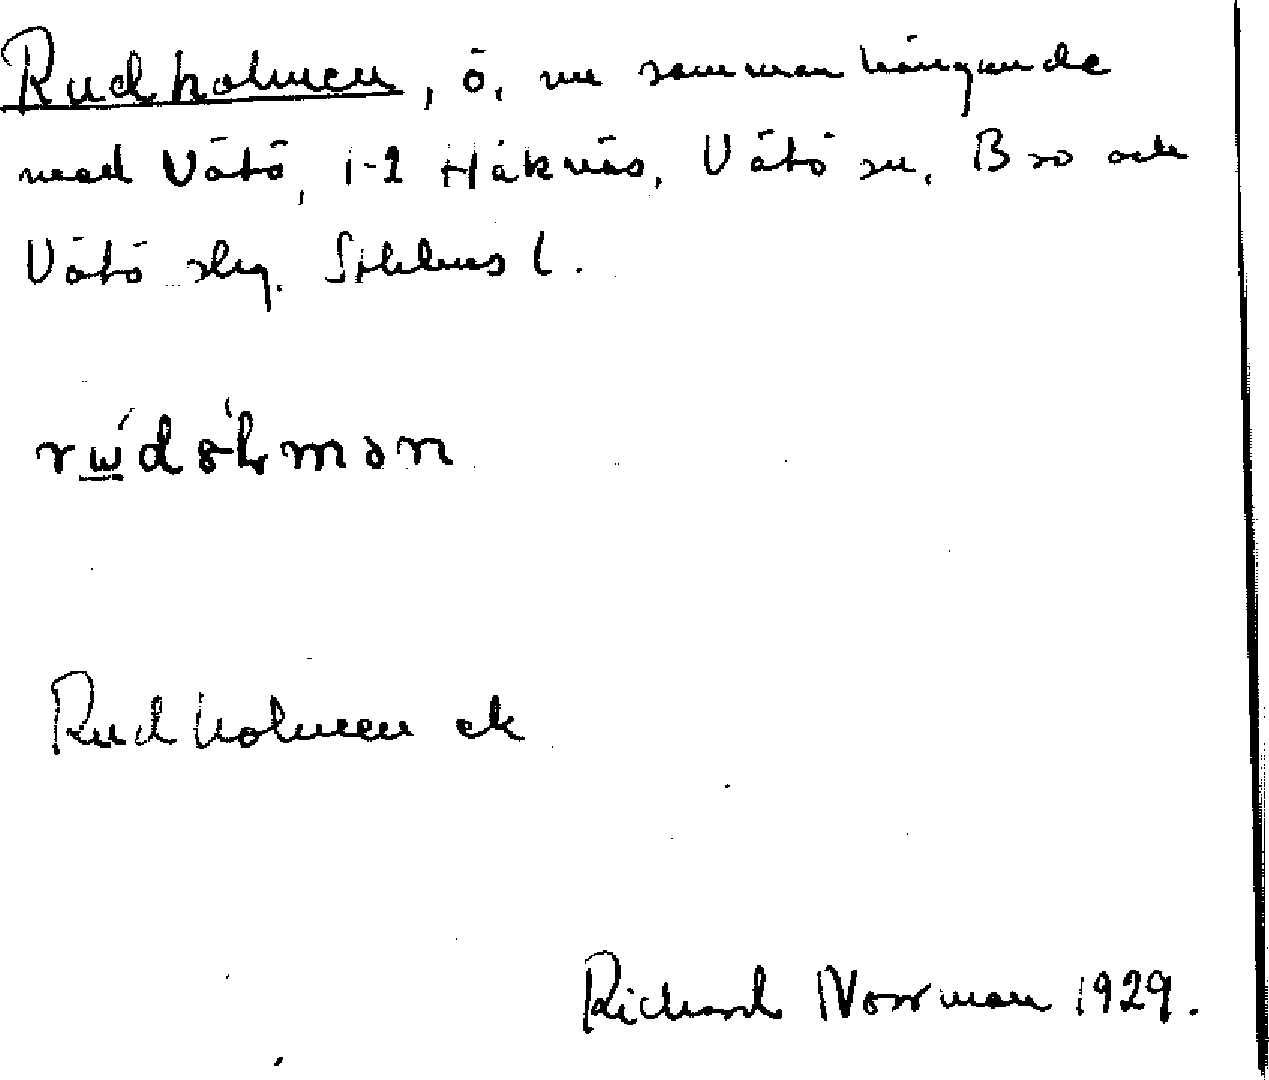 Rudholmen, ö, nu sammanhängande
med Vätö, 1-2 Håknäs, Vätö sn, Bro och
Vätö slg. Sthlms l.
rẃdòlmən
Rudholmen ek
Richard Norrman 1929.